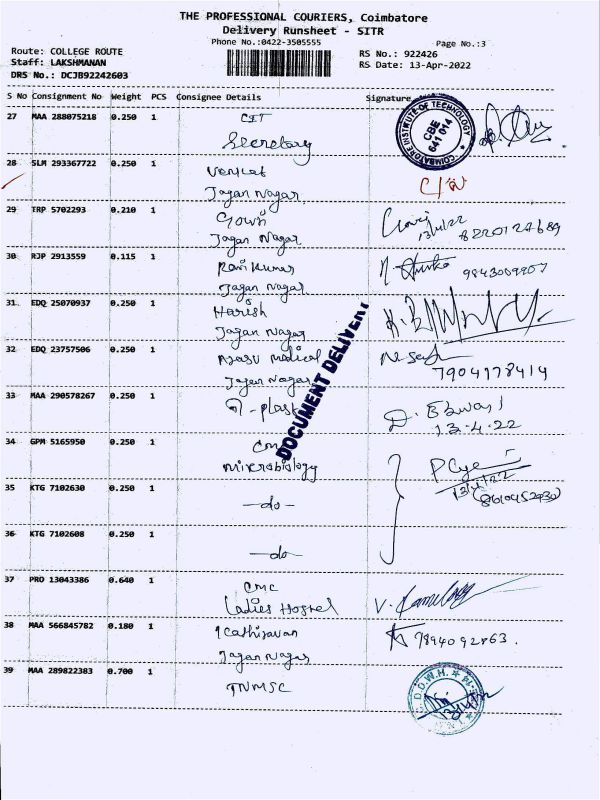 THE PROFESSIONAL COURIERS, Coimbatore
Delivery Runsheet - SITR
Phone No.:0422-3505555
Page No.:3
Route: COLLEGE ROUTE
RS No.: 922426
Staff: LAKSHMANAN
RS Date: 13-Apr-2022
DRS No.: DCJB92242603
S No Consignment No Weight PCS Consignee Details Signature
27 MAA 288075218 0.250 1 CIT
Secretary
COIMBATORE INSTITUTE OF TECHNOLOGY
CBE
641 014
28 SLM 293367722 0.250 1 Venkat
Jagan Nagar
29 TRP 5702293 0.210 1 Gowri
Jagan Nagar
Gowri
13/4/22
8220124689
30 RJP 2913559 0.115 1 Ravikumar
Jagan Nagar
31 EDQ 25070937 0.250 1 Harish
Jagan Nagar
DOCUMENT DELIVERY
32 EDQ 23757506 0.250 1 medical
Jagan Nagar
7904178414
33 MAA 290578267 0.250 1
13.4.22
34 GPM 5165950 0.250 1 CMC
Microbiology
13/4/22
35 KTG 7102630 0.250 1 -do-
36 KTG 7102608 0.250 1 -do-
37 PRO 13043386 0.640 1 CMC
Ladies Hostel
38 MAA 566845782 0.180 1 Kathiravan
Jagan Nagar
39 MAA 289822383 0.700 1 TNMSC